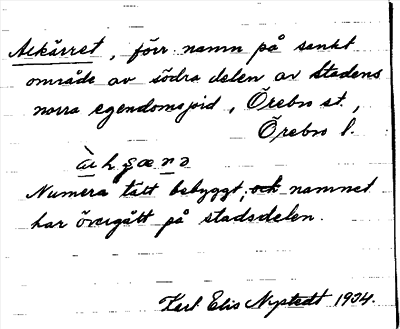 Alkärret, förr namn på sankt
område av södra delen av stadens
norra egendomsjord, Örebro st.,
Örebro l.
Numera tätt bebyggt, och namnet
har övergått på stadsdelen.
Karl Elis Nystedt 1904.